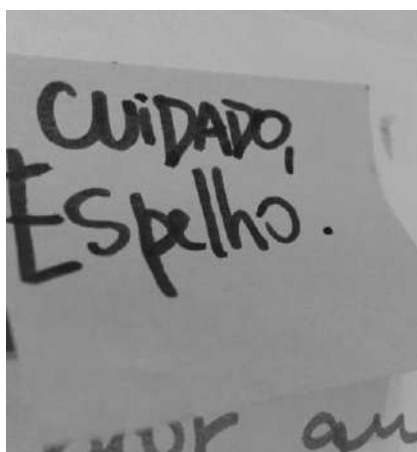 CUiDADO,
Espelho.